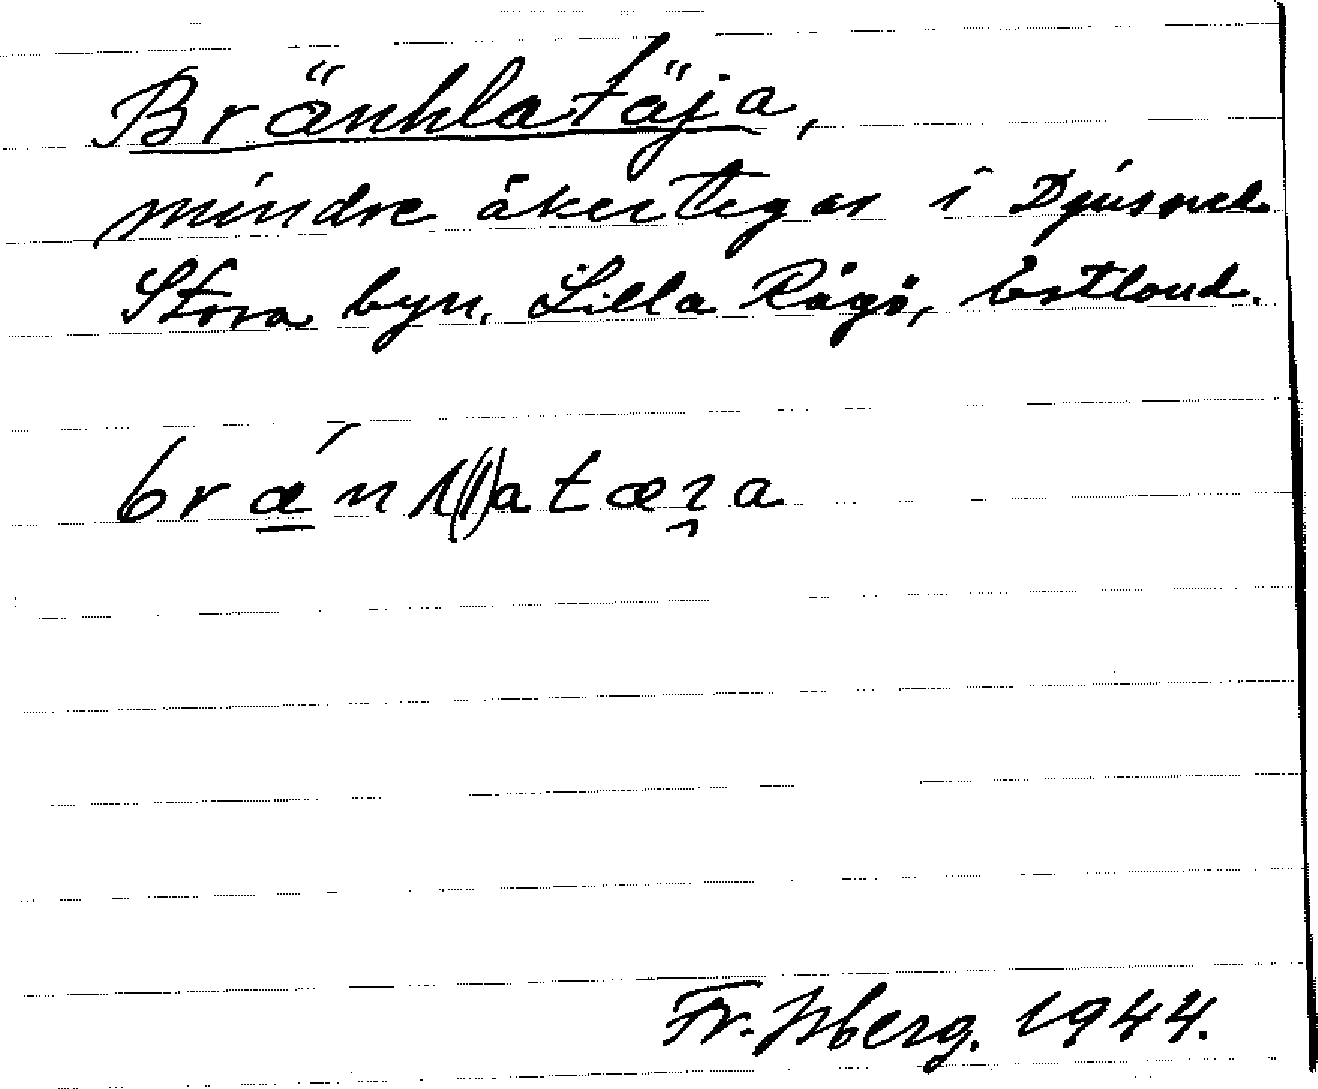 Bränhlatäja,
mindre åkertegar i Djusned
Stora byn. Lilla Rågö, Estland.
brǽn l(l)atæɿa
Fr. Isberg. 1944.